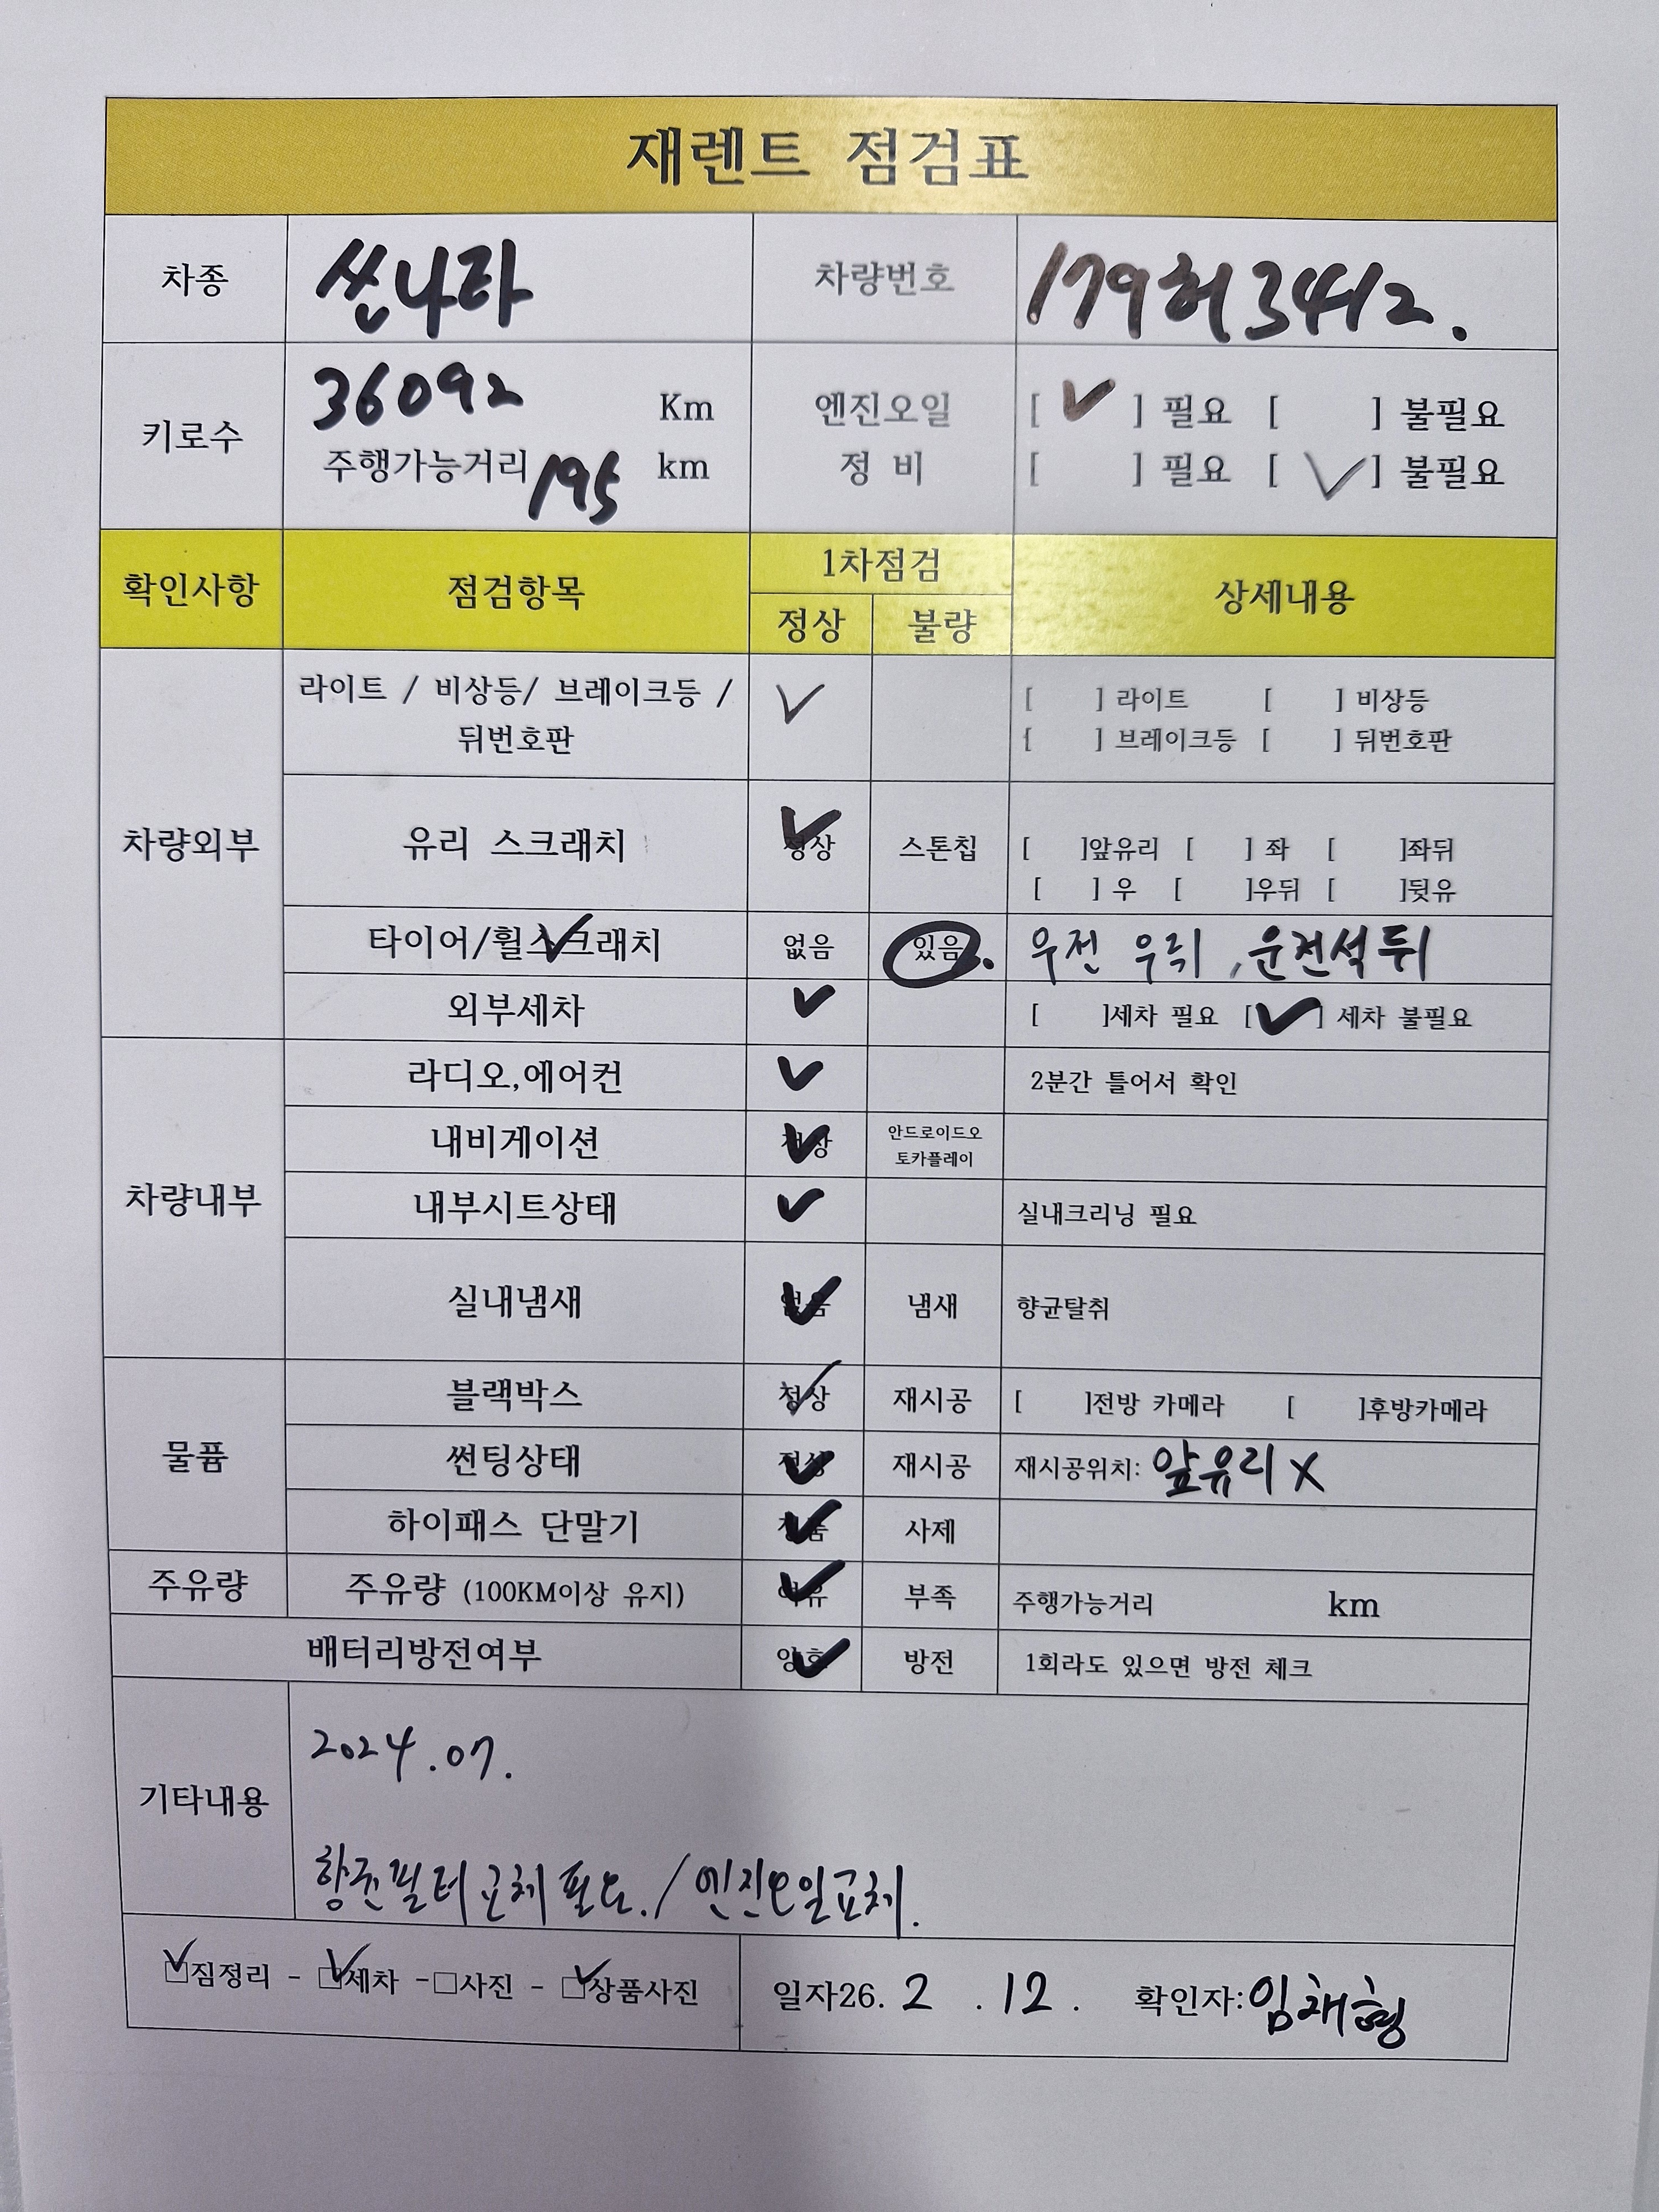 재렌트 점검표
차종 쏘나타 차량번호 179허3412.
키로수 36092 Km 엔진오일 [ ✓ ] 필요 [ ] 불필요
주행가능거리 195 km 정 비 [ ] 필요 [ ✓ ] 불필요
확인사항 점검항목 1차점검 상세내용
정상 불량
차량외부
라이트 / 비상등/ 브레이크등 / ✓ [ ] 라이트 [ ] 비상등
뒤번호판 [ ] 브레이크등 [ ] 뒤번호판
유리 스크래치 ✓ 정상 스톤칩 [ ]앞유리 [ ] 좌 [ ]좌뒤
[ ] 우 [ ]우뒤 [ ]뒷유
타이어/휠스크래치 ✓ 없음 있음 우전 우뒤 , 운전석 뒤
외부세차 ✓ [ ]세차 필요 [✓] 세차 불필요
차량내부
라디오,에어컨 ✓ 2분간 틀어서 확인
내비게이션 ✓ 정상 안드로이드오
토카플레이
내부시트상태 ✓ 실내크리닝 필요
실내냄새 ✓ 없음 냄새 향균탈취
물품
블랙박스 ✓ 정상 재시공 [ ]전방 카메라 [ ]후방카메라
썬팅상태 ✓ 정상 재시공 재시공위치: 앞유리 X
하이패스 단말기 ✓ 정품 사제
주유량 주유량 (100KM이상 유지) ✓ 여유 부족 주행가능거리 km
배터리방전여부 ✓ 양호 방전 1회라도 있으면 방전 체크
기타내용
2024.07.
향균필터 교체 필요. / 엔진오일교체.
☑짐정리 - ☑세차 -□사진 - ☑상품사진 일자26. 2 . 12 . 확인자:임채형